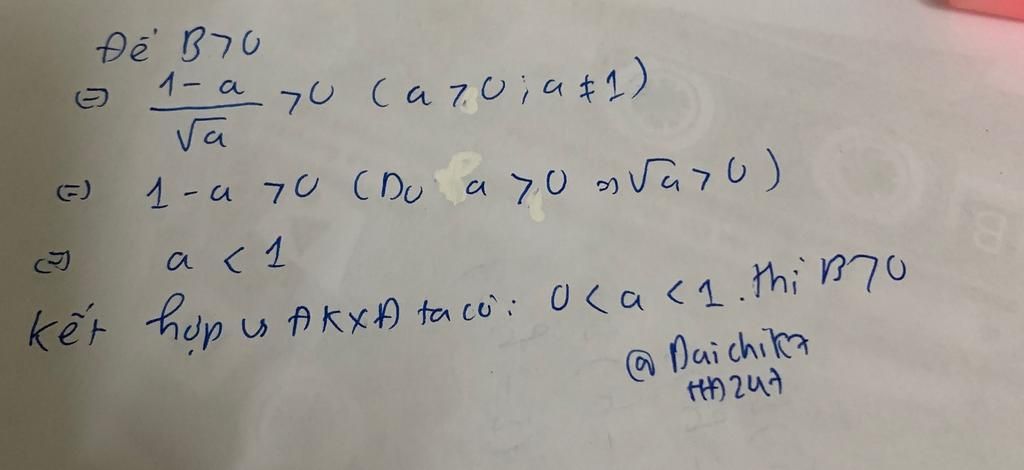 Để B > 0
⇔ 1 - a / √a > 0 ( a > 0 ; a ≠ 1 )
⇔ 1 - a > 0 ( Do a > 0 ⇒ √a > 0 )
⇔ a < 1
Kết hợp vs ĐKXĐ ta có: 0 < a < 1. thì B > 0
@Daichik7
HĐ247